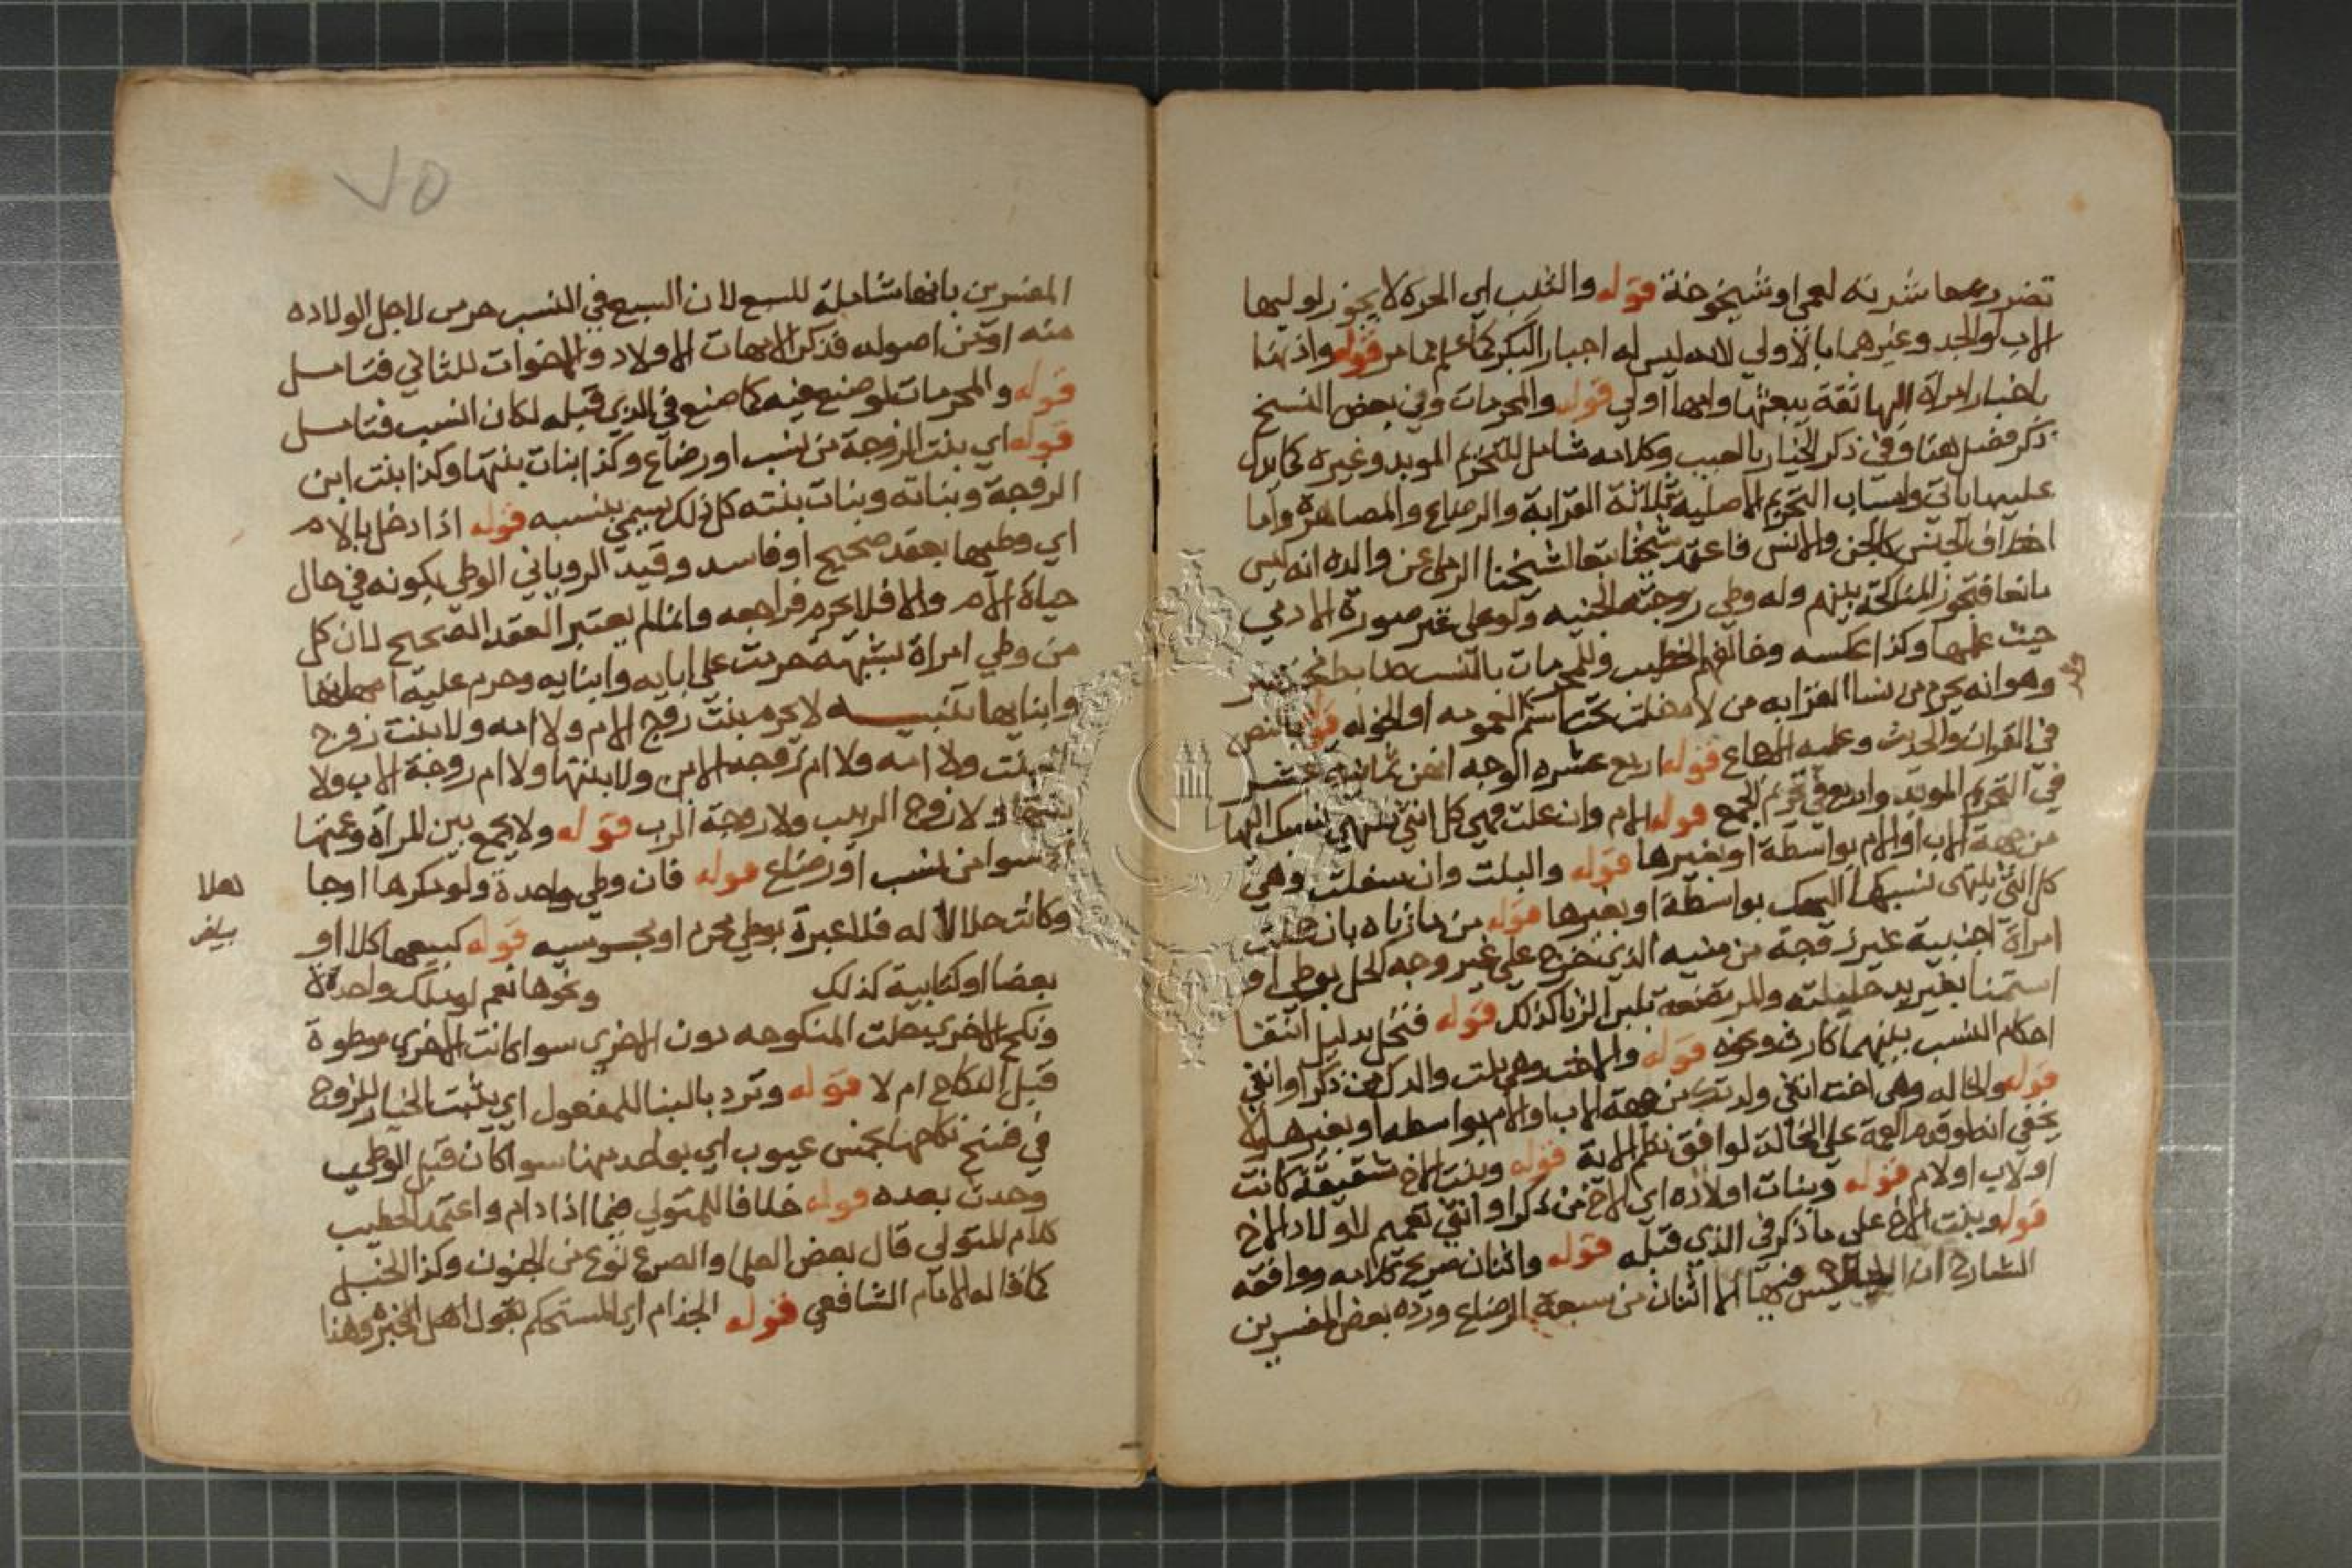 تضرر بمعاشرته لعمي او شيخوخة قوله والثيب اي الحرة لا يجوز لوليها
الاب والجد وغيرهما بالاولي لانه ليس له اجبار البكر كما علم مما مر قوله واذنها
باخبار امراة اليها ثقة يبعثها وامها اولي قوله والمحرمات وفي بعض النسخ
ذكر فصل هنا وفي ذكر الخيار بالعيب وكلامه شامل للتحريم الموبد وغيره كما يدل
عليه ماياتي واسباب التحريم الاصلية ثلاثة القرابة والرضاع والمصاهرة واما
اختلاف الجنس كالجن والانس فاعتمد شيخنا تبعا لشيخنا الرملي عن والده انه ليس
مانعا فتجوز المناكحة بينهم وله وطي زوجته الجنيه ولو علي غير صورة الادمي
حيث علمها وكذا عكسه وخالفهم الخطيب وللمحرمات بالنسب ضابط
وهو انه يحرم من نسا القرابه من لا دخلت تحت اسم العمومه او الخوله قوله بالنص
في القران والحديث وعليه الاجماع قوله اربع عشره الوجه انهن ثمانية عشر
في التحريم الموبد واربع في تحريم الجمع قوله الام وان علت فهي كل انثي ينتهي نسبك اليها
من جهة الاب او الام بواسطة او بغيرها قوله والبنت وان سفلت وهي
كل انثي ينتهي نسبها اليك بواسطة او بغيرها قوله من ما زناه بان حبلت
امراة اجنبية غير زوجة من منيه الذي خرج علي غير وجه الحل بوطي او
استمنا بغير يد حليلته والمرتضعة بلبن الزنا كذلك قوله فتحل بدليل انتفا
احكام النسب بينهما كارث ونحوه قوله والاخت وهي بنت والدك من ذكر او انثي
قوله والخاله وهي اخت انثي ولدتك من جهة الاب او الام بواسطه او بغيرها ولا
يخفي انه لو قدم العمة علي الخالة لوافق نظم الاية قوله وبنت الاخ شقيقة كانت
او لاب او لام قوله وبنات اولاده اي الاخ من ذكر او انثي تعميم لاولاد الاخ
قوله وبنت الاخ علي ما ذكر في الذي قبله قوله واثنان صريح كلامه ووافقه
الشارح ان ليس فيها الا اثنان من سبعة الرضاع ورده بعض المفسرين
٧٥
المفسرين بانها شاملة للسبع لان السبع في النسب حرمن لاجل الولاده
منه او من اصوله فذكر الامهات للاولاد والاخوات للثاني فتامل
قوله والمحرمات لو صنع فيه كما صنع في الذي قبله لكان انسب فتامل
قوله اي بنت الزوجة من نسب او رضاع وكذا بنات بنتها وكذا بنت ابن
الزوجة وبناته وبنات بنته كل ذلك يسمي بنسبه قوله اذا دخل بالام
اي وطيها بعقد صحيح او فاسد وقيد الروياني الوطي بكونه في حال
حياة الام والا فلا يحرم فراجعه وانما لم يعتبر العقد الصحيح لان كل
من وطي امراة بشبهة حرمت علي ابايه وابنايه وحرم عليه امهاتها
وابنايها تنبيه لا يحرم بنت زوج الام ولا امه ولا بنت زوج
البنت ولا امه ولا ام زوجة الابن ولا بنتها ولا ام زوجة الاب ولا
بنتها ولا زوج الربيب ولا زوجة الرب قوله ولا يجمع بين المراة وعمتها
سوا من نسب او رضاع قوله فان وطي واحدة ولو مكرها او جا
وكانت حلالا له فلا عبرة بوطي محرم او مجوسيه قوله كبيعها كلا او
بعضا او كتابية كذلك ونحوها نعم لو ملك واحدة
هلا
بياض
ونكح الاخري حلت المنكوحه دون الاخري سوا كانت الاخري موطوة
قبل النكاح ام لا قوله وترد بالبنا للمفعول اي يثبت الخيار للزوج
في فسخ نكاحها بخمس عيوب اي بواحد منها سوا كان قبل الوطي
وحدث بعده قوله خلافا للمتولي فيما اذا دام واعتمد الخطيب
كلام المتولي قال بعض العلما والصرع نوع من الجنون وكذا الخبل
كما قاله الامام الشافعي قوله الجذام اي المستحكم بقول اهل الخبره وهنا